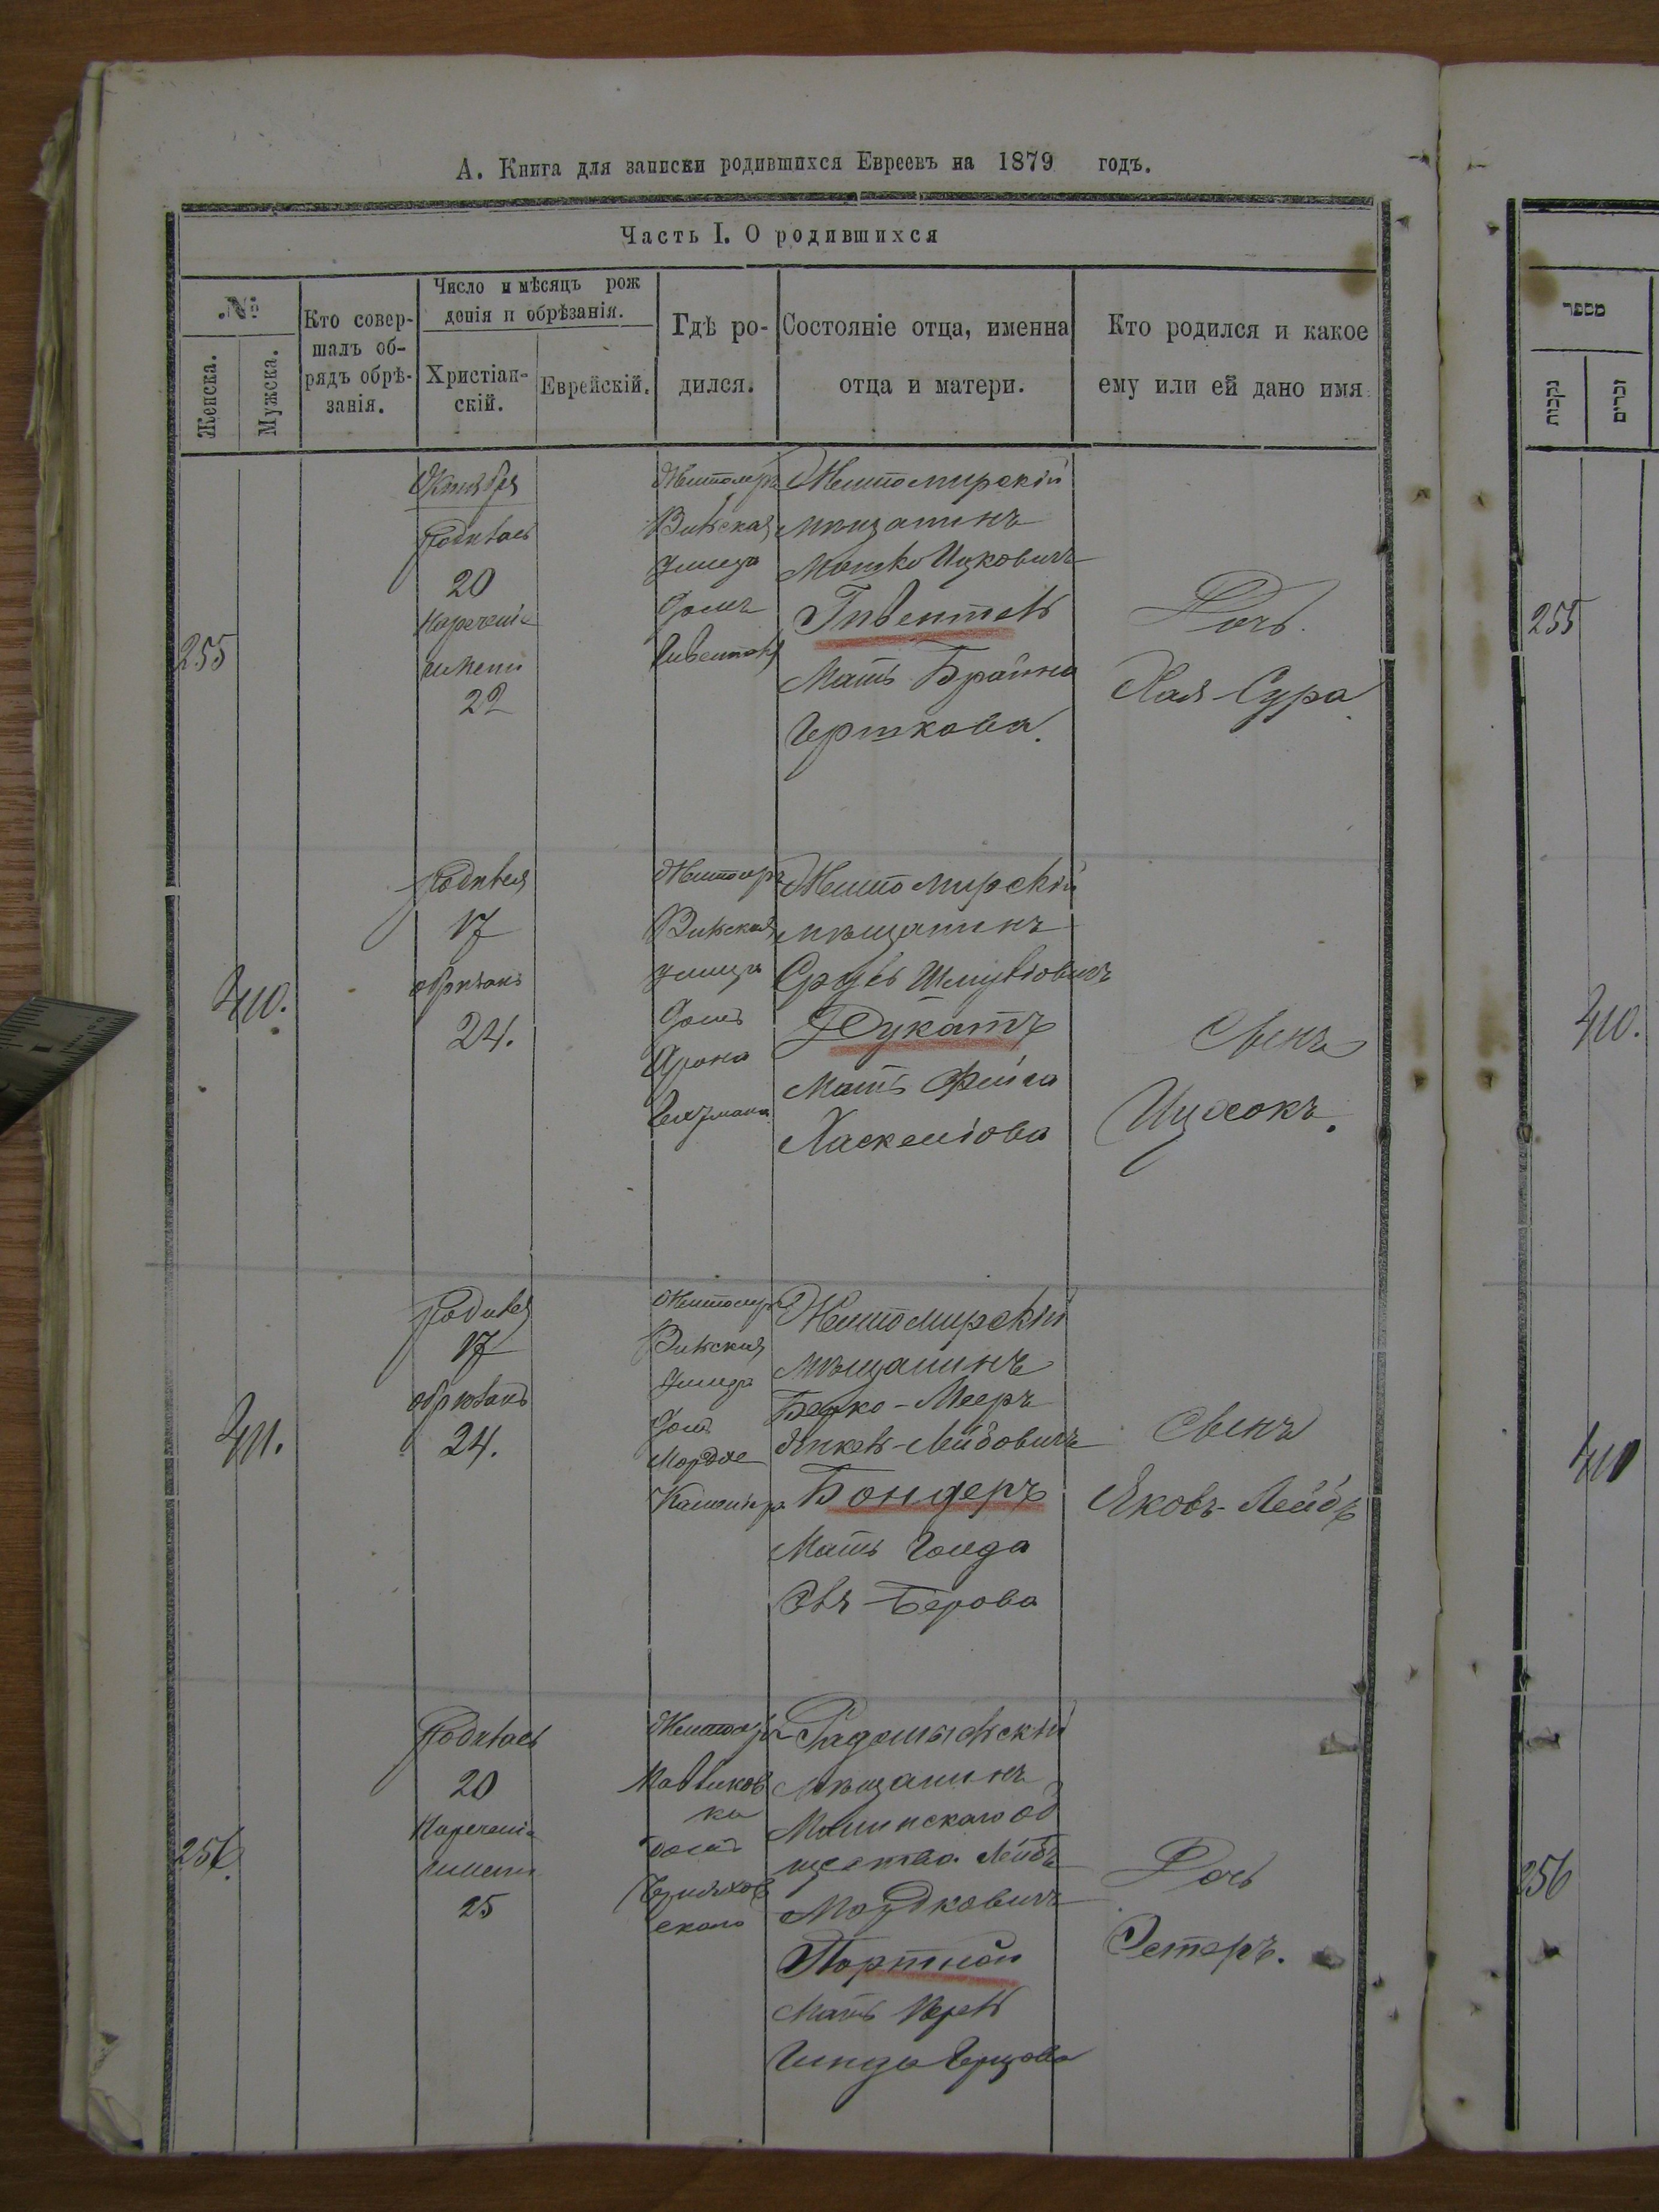 А. Книга для записки родившихся Евреевъ на 1879 годъ.
Часть I. О родившихся
№
Женска.
Мужска.
Кто совер-
шалъ об-
рядъ обрѣ-
занія.
Число и мѣсяцъ рож
денія и обрѣзанія.
Христіан-
скій.
Еврейскій.
Гдѣ ро-
дился.
Состояніе отца, именна
отца и матери.
Кто родился и какое
ему или ей дано имя
מספר
נקבות
זכרים
255
Октября
Родилась
20
Наречени
имени
22
Житомиръ
Вильская
улица
домъ
Житомирскій
мѣщанинъ
Мошко Ицковичъ
Мать Брайна
Гершкова.
Дочь.
Хая-Сура
255
410.
Родился
17
обрѣзанъ
24.
Житомиръ
Вильская
улица
домъ
Арона
Житомирскій
мѣщанинъ
Сруль Шмулiовичъ
Дукатъ
Мать Фейга
Хаскелiова
Сынъ
Ицхокъ.
410.
411.
Родился
17
обрѣзанъ
24.
Житомиръ
Вильская
улица
домъ
Мордхе
Житомирскій
мѣщанинъ
Берко-Мееръ
Янкель-Лейбовичъ
Бондеръ
Мать Голда
Берова
Сынъ
Яковъ-Лейбъ
411
256.
Родилась
20
Наречени
имени
25
Житомиръ
домъ
Радомысльскій
мѣщанинъ
Малинскаго об
щества Лейбъ
Мордковичъ
Портной
Мать
Гинда Герцова
Дочь
Эстеръ.
256